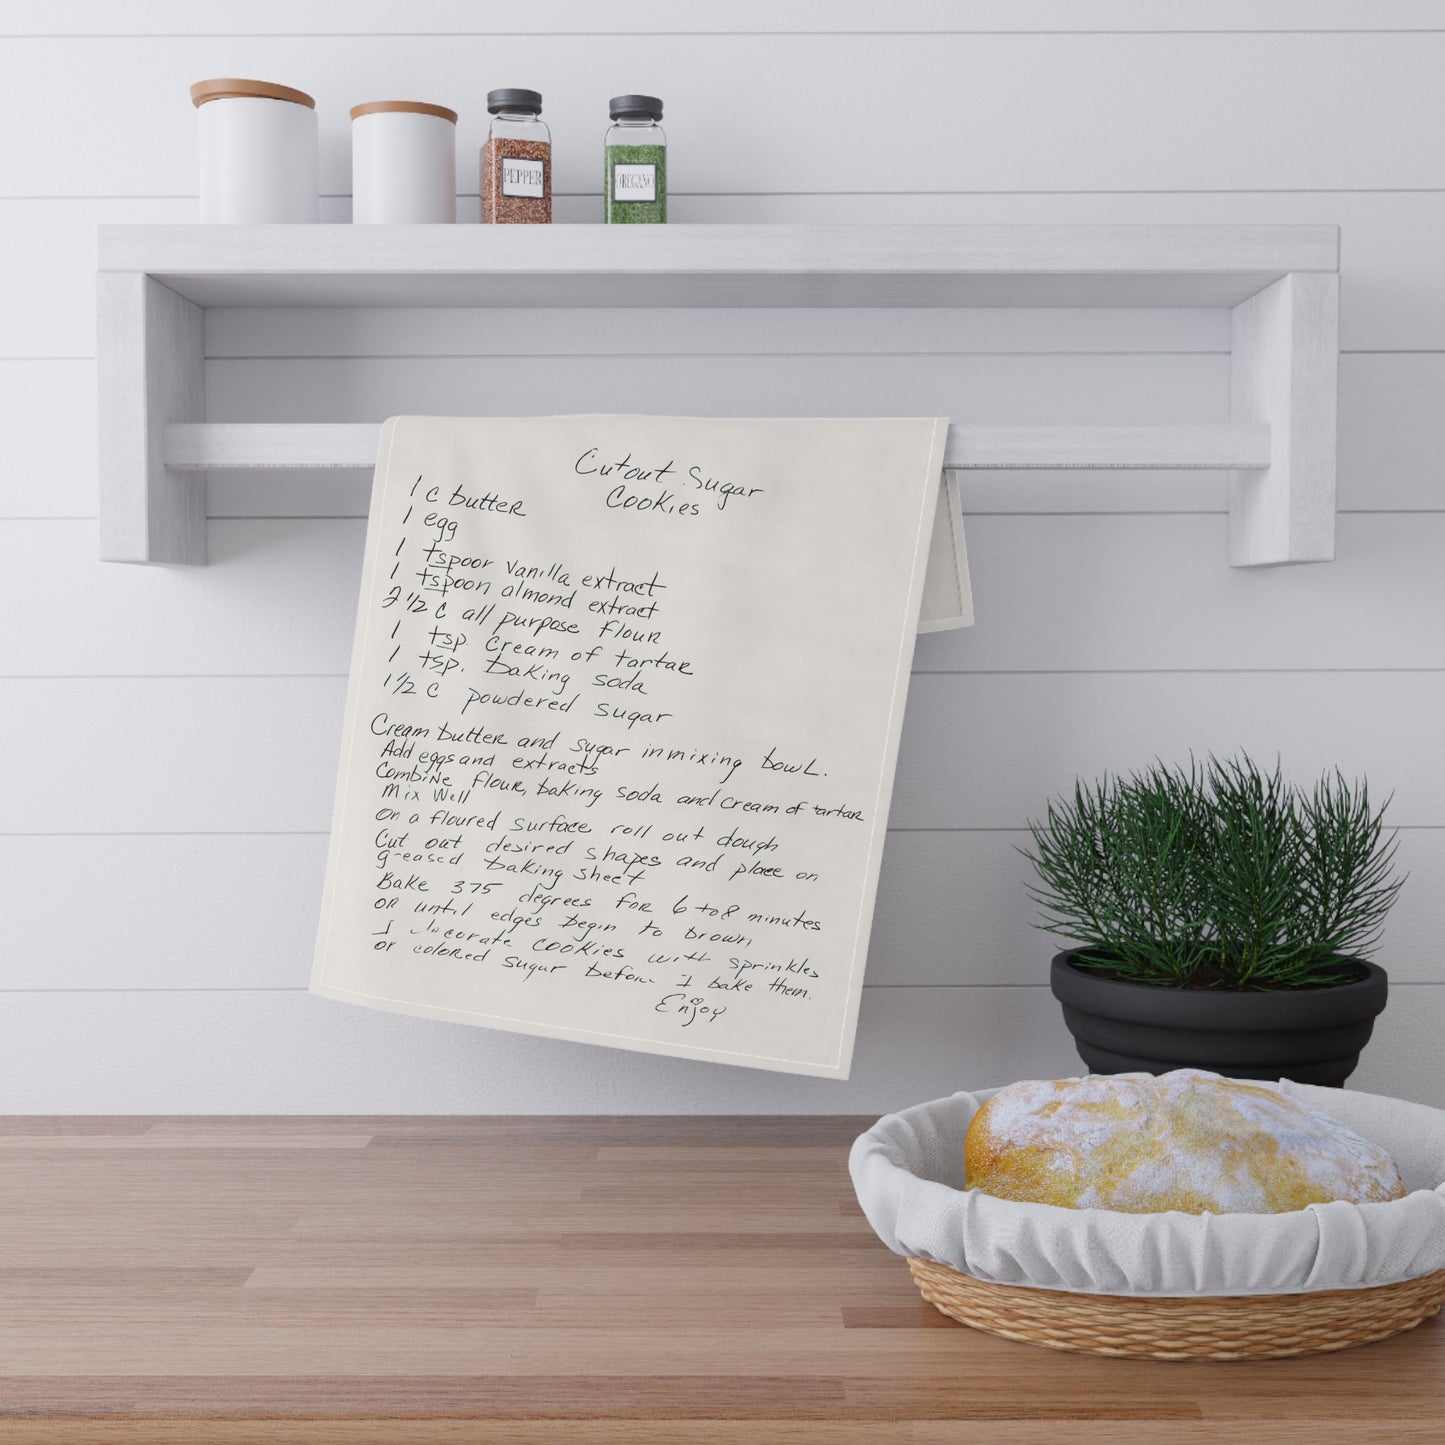 PEPPER
OREGANO
Cutout Sugar
Cookies
1 c butter
1 egg
1 tspoor vanilla extract
1 tspoon almond extract
2 1/2 c all purpose flour
1 tsp cream of tartar
1 tsp. baking soda
1 1/2 c powdered sugar
Cream butter and sugar in mixing bowl.
Add eggs and extracts
Combine flour, baking soda and cream of tartar
Mix well
on a floured surface roll out dough
Cut out desired shapes and place on
greased baking sheet
Bake 375 degrees for 6 to 8 minutes
or until edges begin to brown
I decorate cookies with sprinkles
or colored sugar before I bake them.
Enjoy